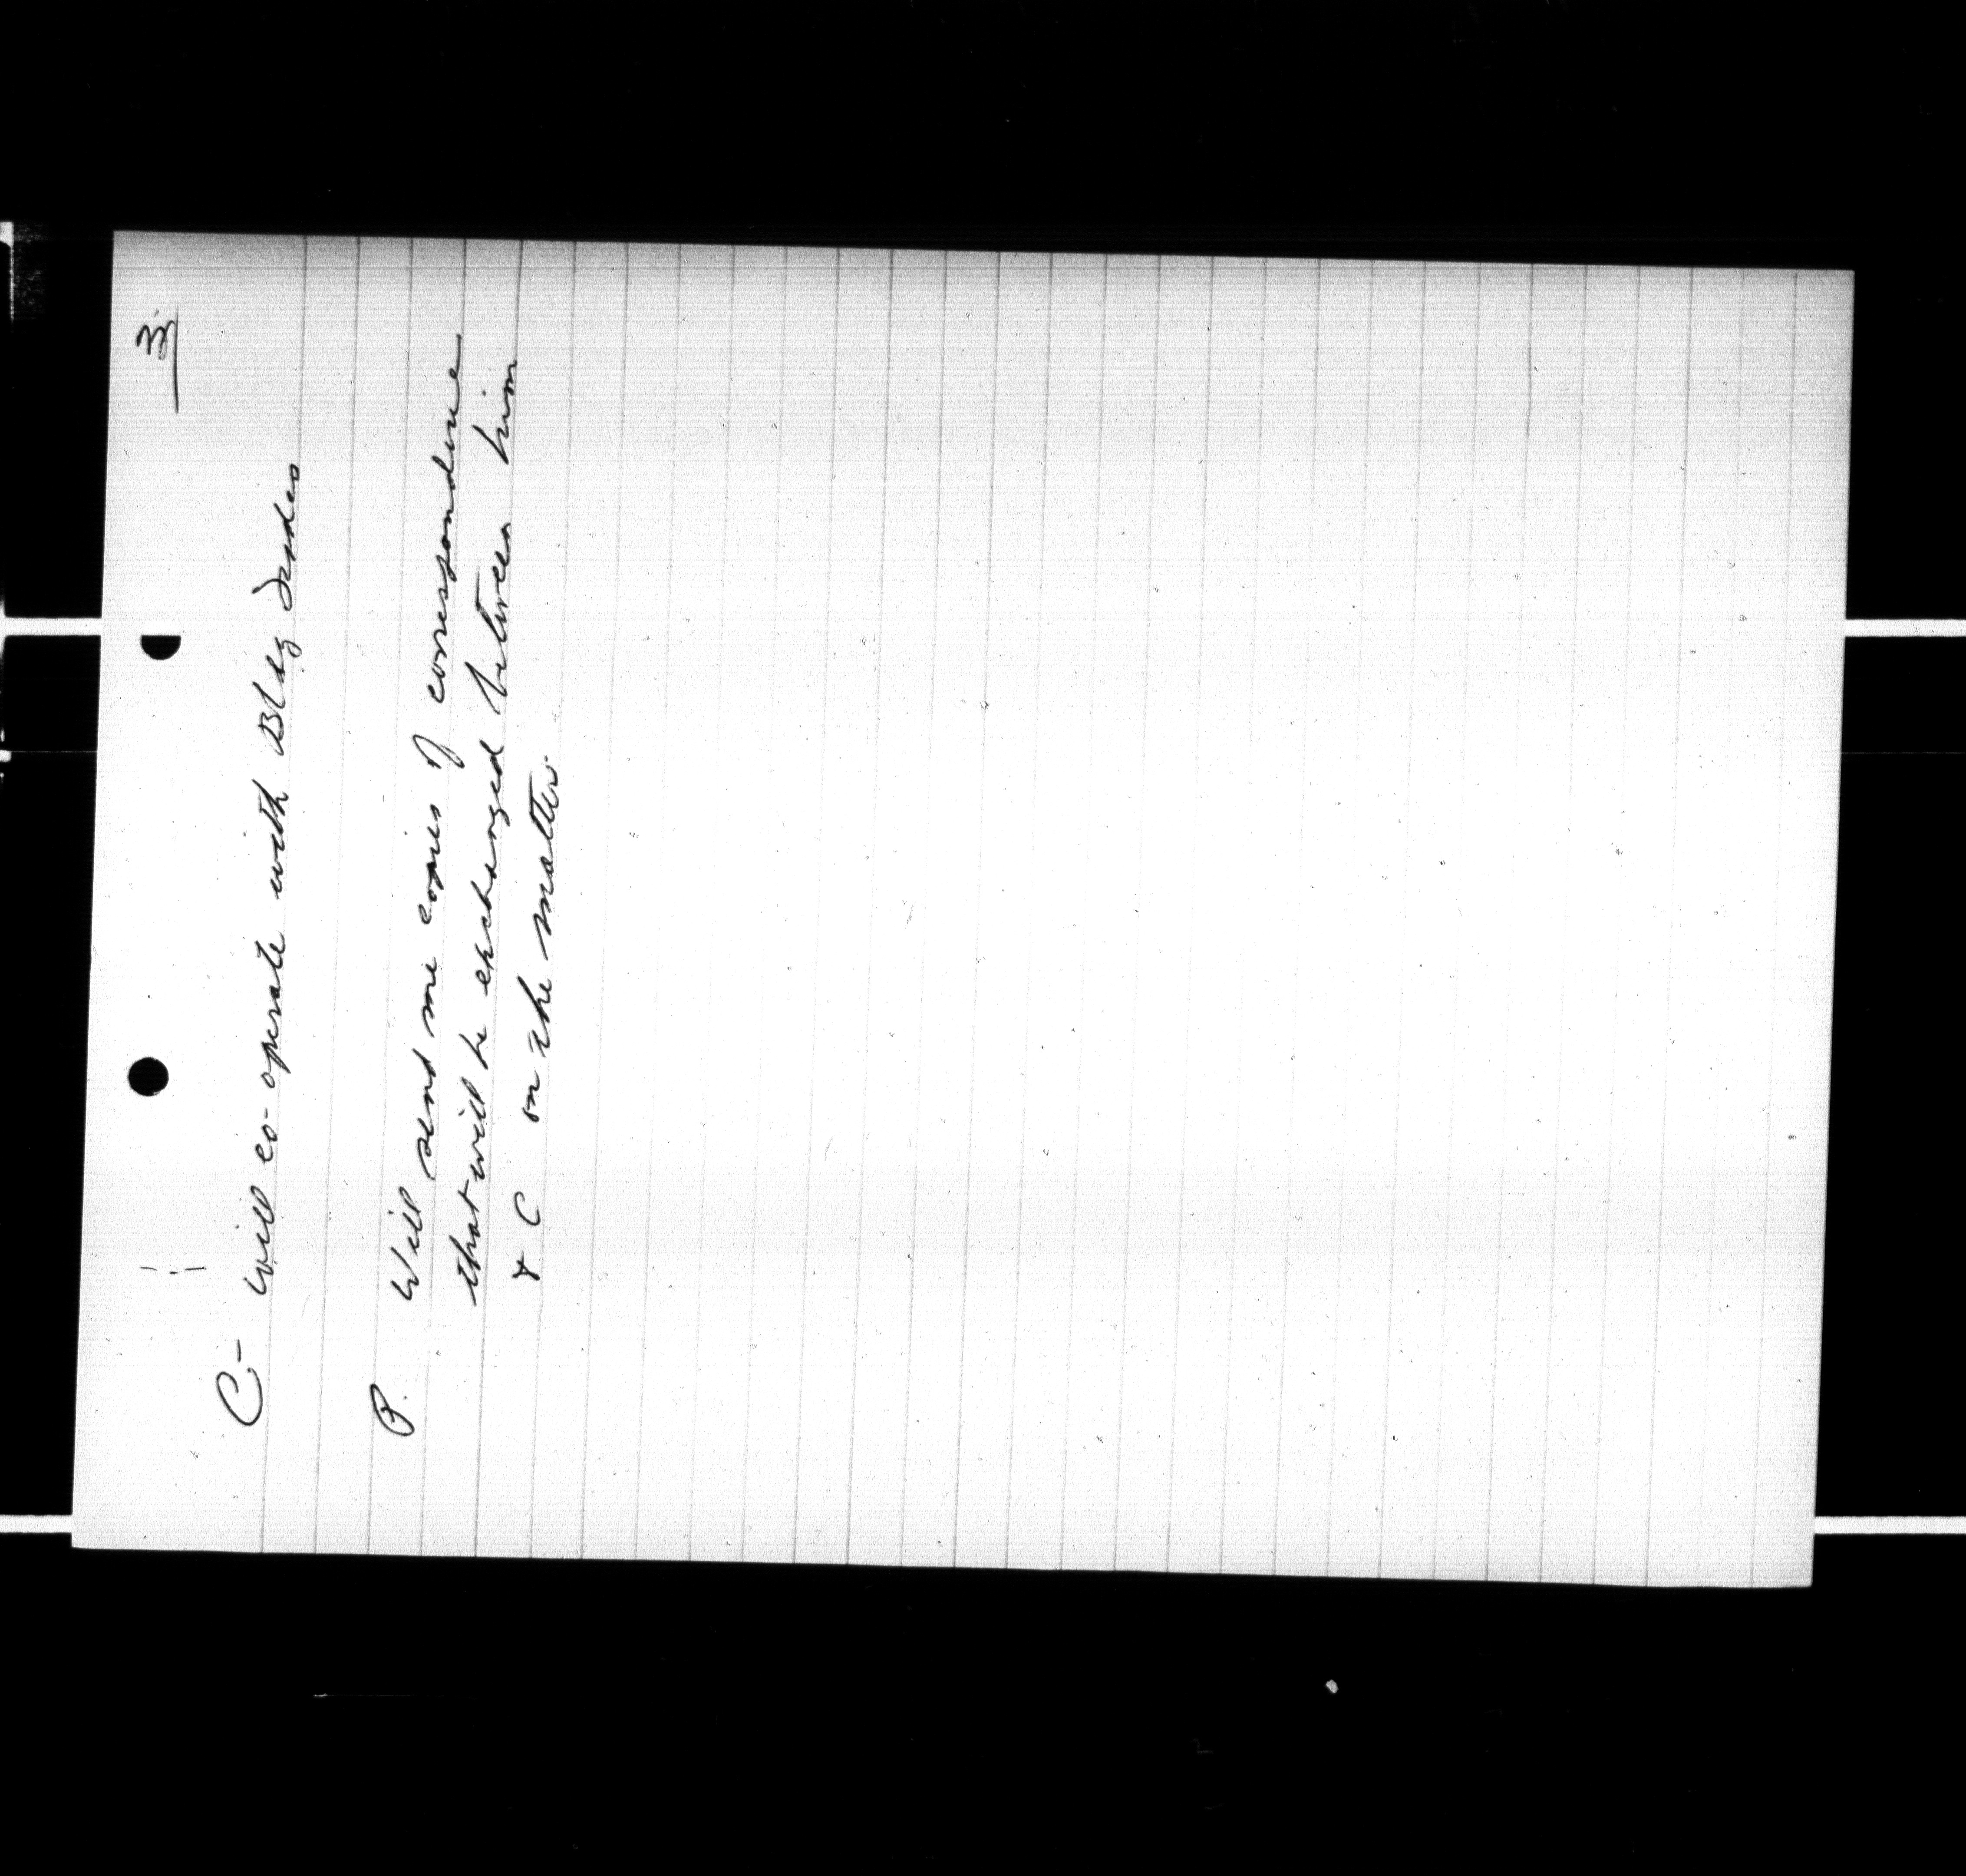 3.
C- will co-operate with Bldg Trades
P. Will send me copies of correspondence
that will be exchanged between him
& C on the matter.